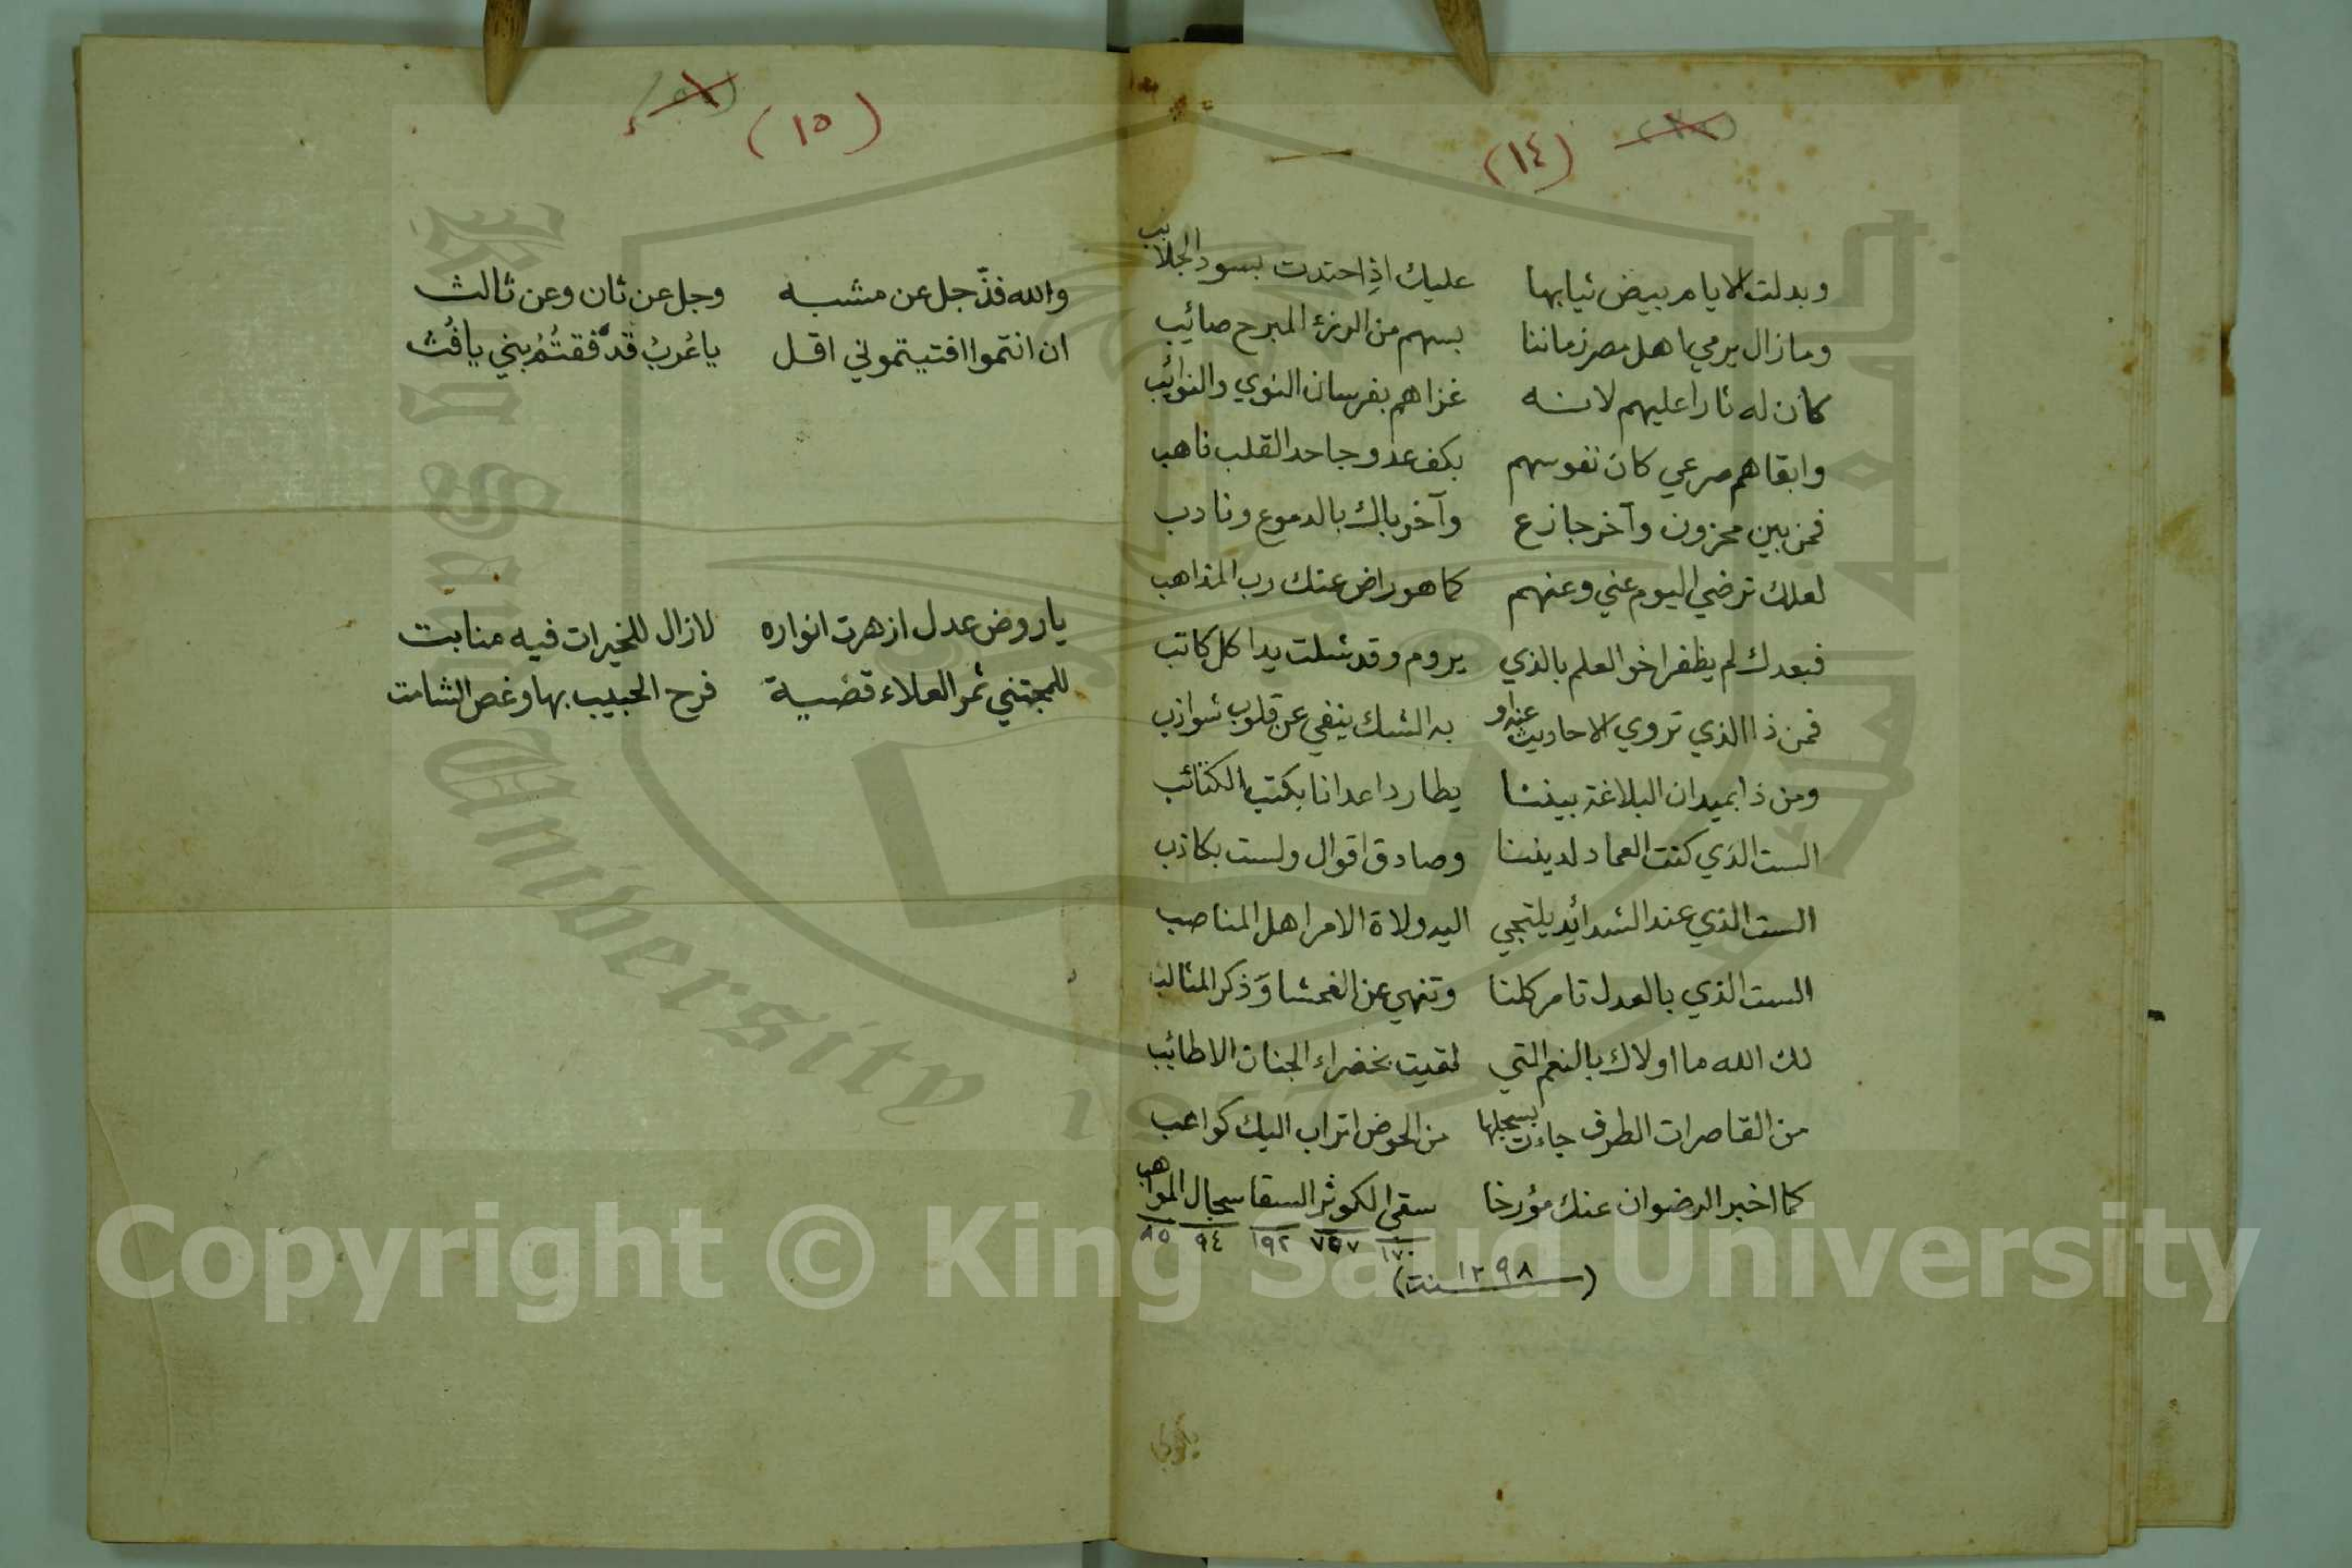 (١٤)
وبدلت الايام بيض ثيابها عليك اذ احتدت بسود الجلابب
وما زال يرمي اهل مصر زماننا بسهم من الرزء المبرح صائب
كان له ثارا عليهم لانه غزاهم بفرسان النوي والنوائب
وابقاهم صرعي كان نفوسهم بكف عدو جاحد القلب ناهب
فمن بين محزون وآخر جازع وآخر باك بالدموع ونادب
لعلك ترضي اليوم عني وعنهم كما هو راض عنك رب المذاهب
فبعدك لم يظفر اخو العلم بالذي يروم وقد شلت يدا كل كاتب
فمن ذا الذي تروي الاحاديث عنه او به الشك ينفي عن قلوب شوازب
ومن ذا بميدان البلاغة بيننا يطارد اعدانا بكتب الكتائب
الست الذي كنت العماد لديننا وصادق اقوال ولست بكاذب
الست الذي عند الشدائد يلتجي اليه ولاة الامر اهل المناصب
الست الذي بالعدل تامر كلنا وتنهي عن الفحشا وذكر المثالب
لك الله ما اولاك بالنعم التي لقيت بخضراء الجنان الاطائب
من القاصرات الطرف جاءت بسجلها من الحوض اتراب اليك كواعب
كما اخبر الرضوان عنك مؤرخا سقي الكوثر السقا سجال المواهب
١٧٠ ٧٥٧ ١٩٢ ٩٤ ٨٥
(سنة ١٢٩٨)
(١٥)
والله فذّ جل عن مشبه وجل عن ثان وعن ثالث
ان انتموا افتيتموني اقل يا عُربُ قد فقتُمُ بني يافُث
يا روض عدل ازهرت انواره لا زال للخيرات فيه منابت
للمجتني ثمر العلاء قضية فرح الحبيب بها وغص الشامت
Copyright © King Saud University
King Saud University 1957